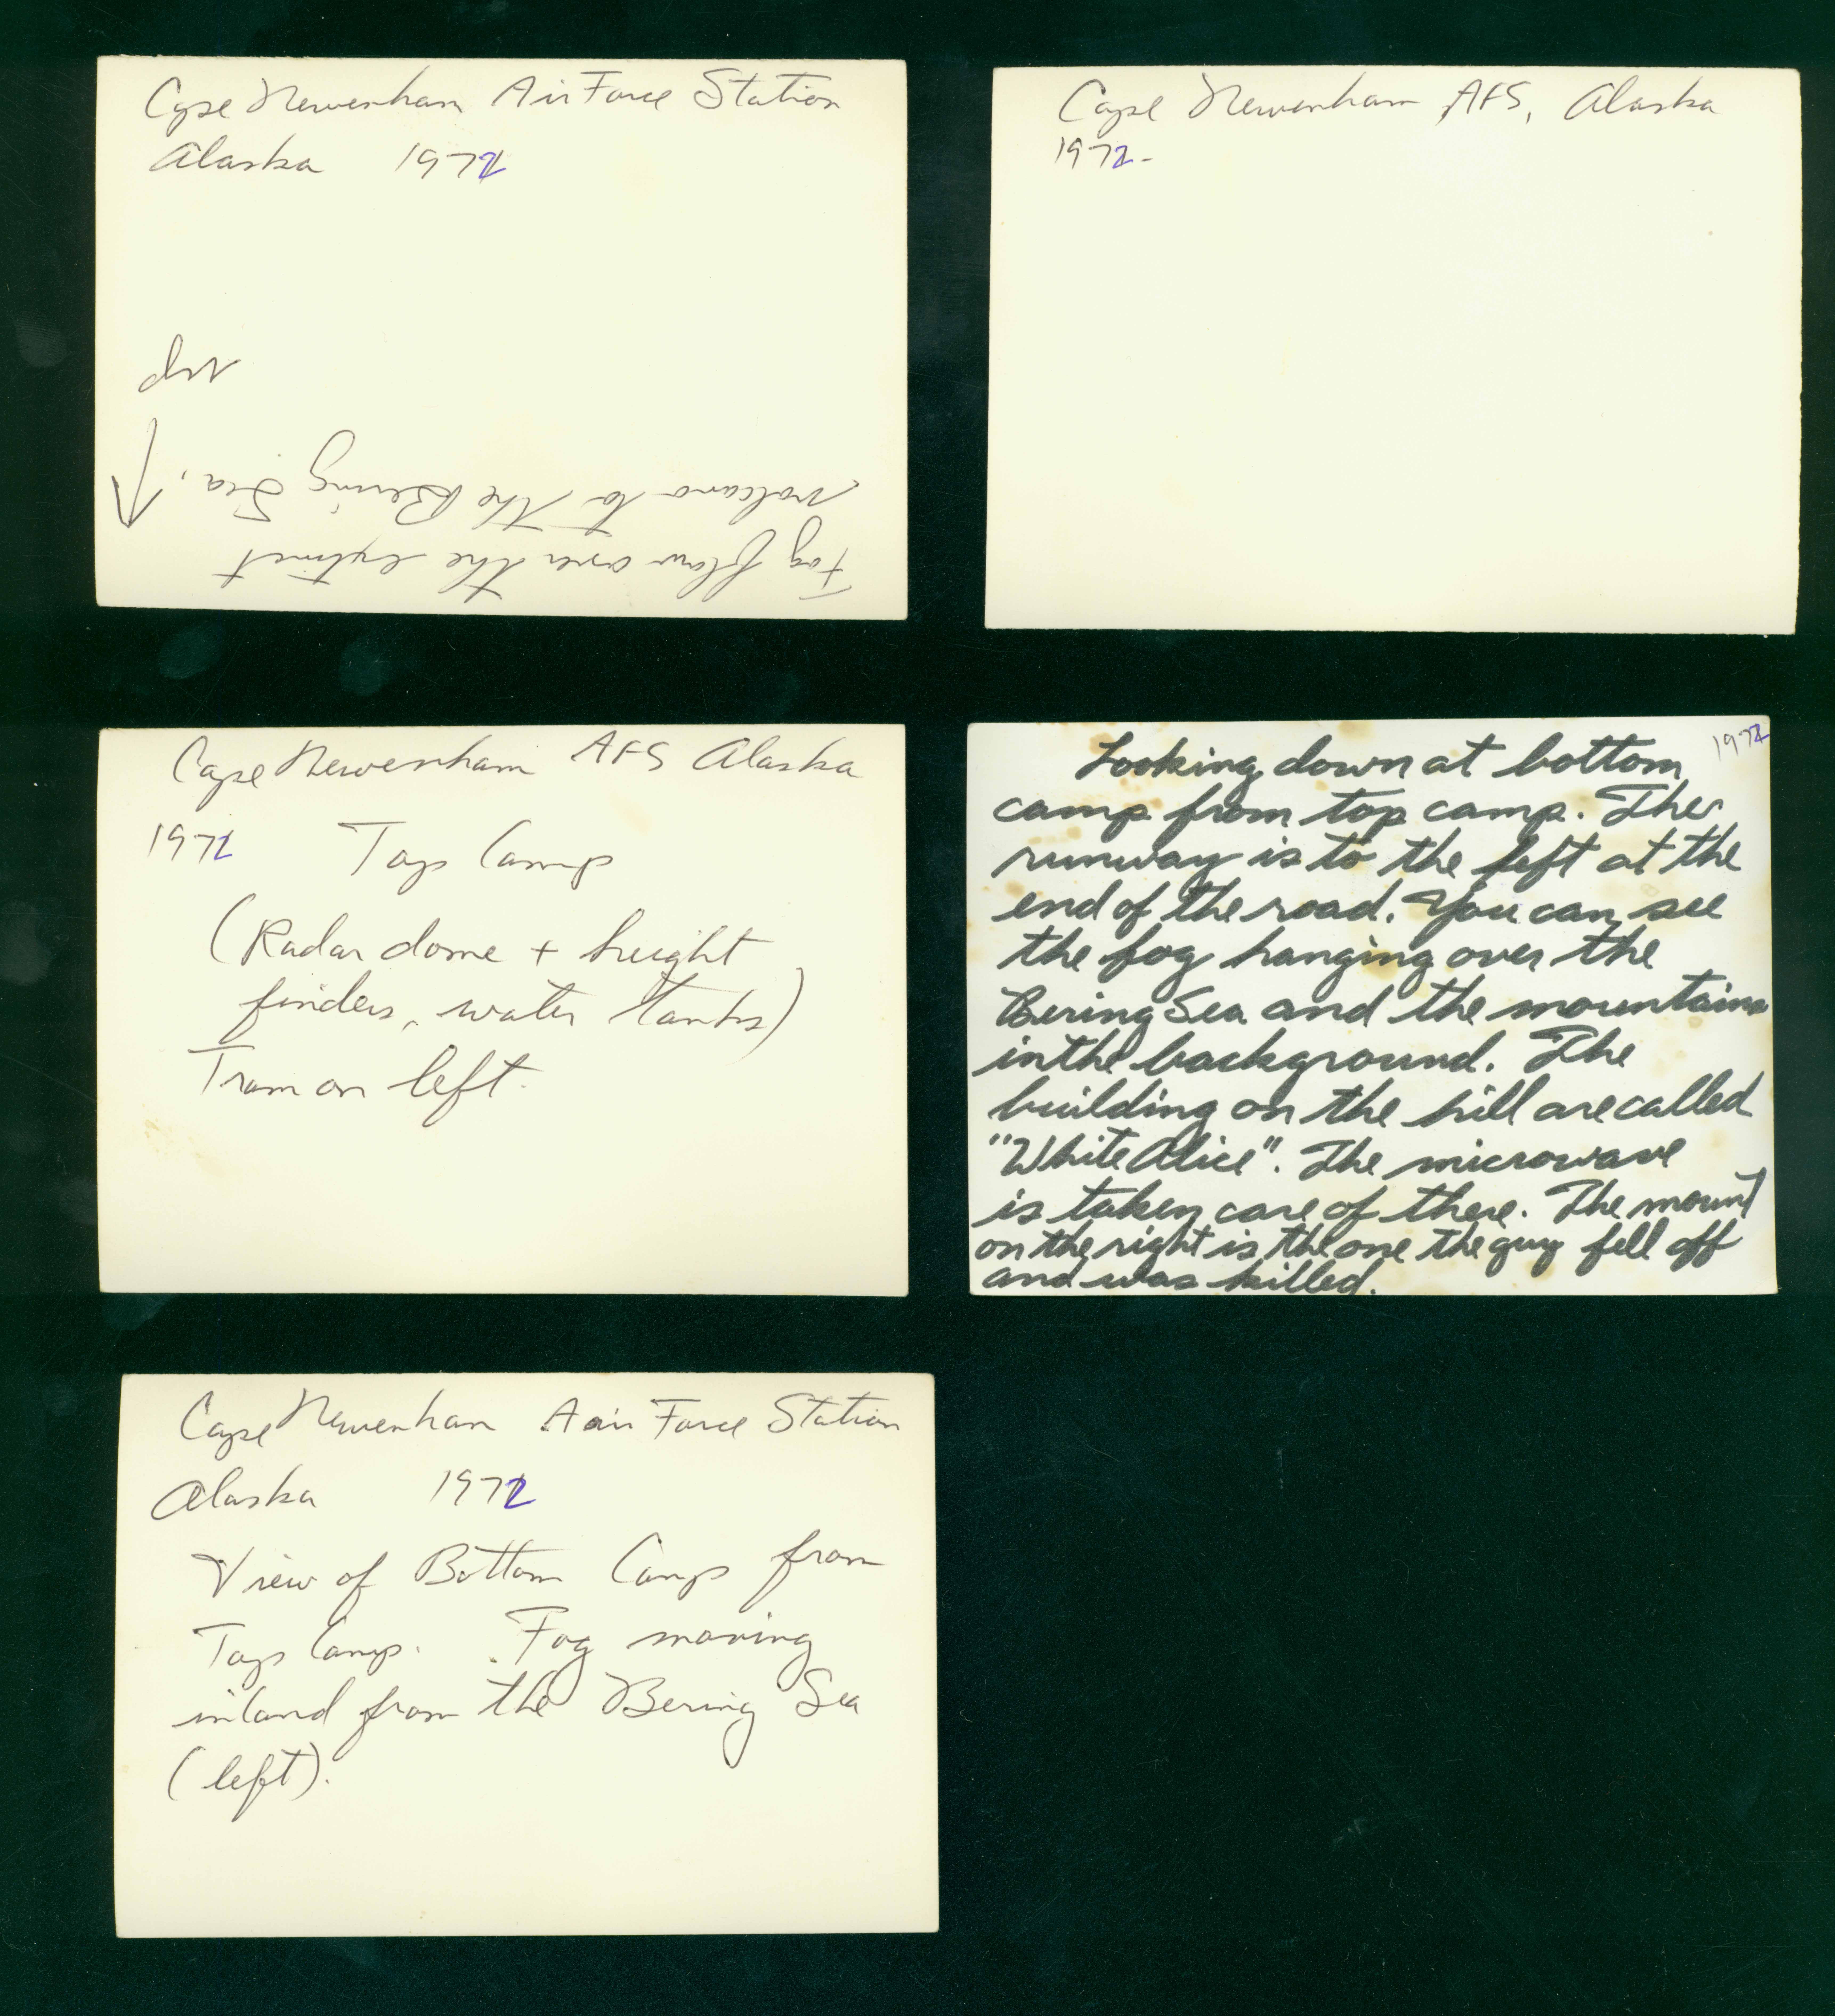 Cape Newenham Air Force Station
Alaska 1972
up
Fog flow over the extinct
volcano to the Bering Sea.
Cape Newenham AFS, Alaska
1972-
Cape Newenham AFS Alaska
1972 Top Camp
(Radar dome + height
finders, water tanks)
Tram on left.
1972
Looking down at bottom
camp from top camp. The
runway is to the left at the
end of the road. You can see
the fog hanging over the
Bering Sea and the mountains
in the background. The
building on the hill are called
"White Alice". The microwave
is taken care of there. The mount
on the right is the one the guy fell off
and was killed.
Cape Newenham Aair Force Station
Alaska 1972
View of Bottom Camp from
Top Camp. Fog moving
inland from the Bering Sea
(left).